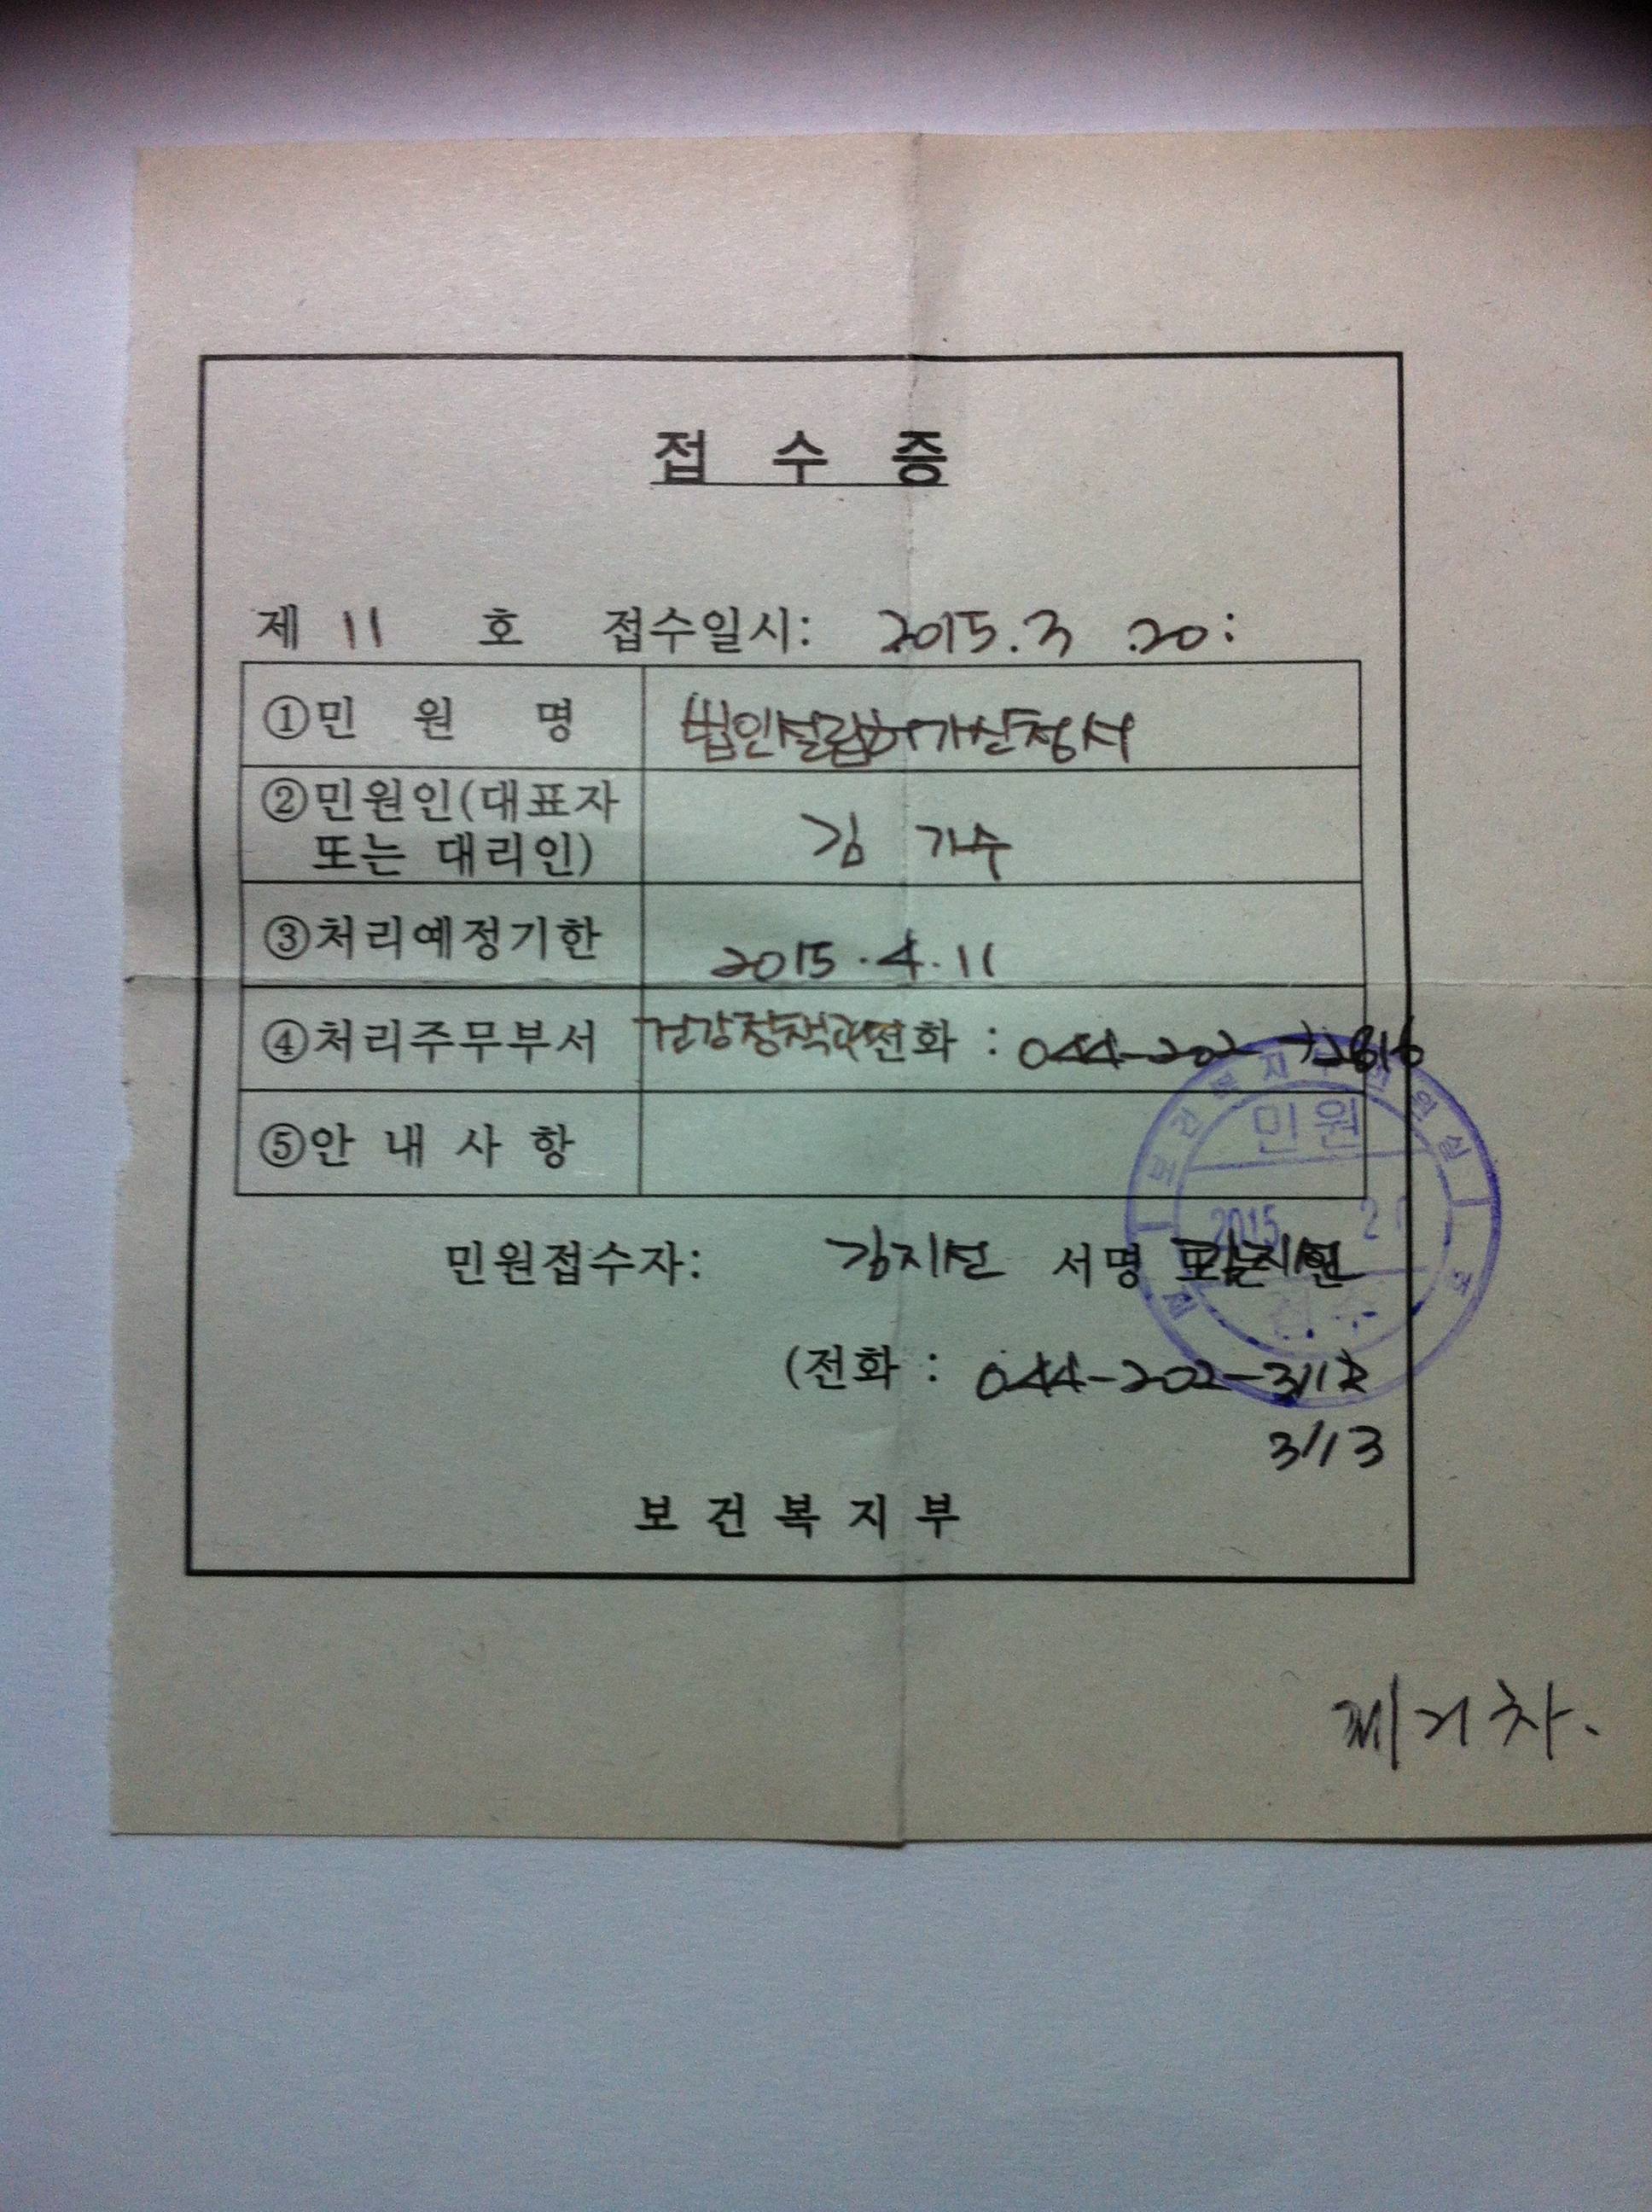 접 수 증
제 11 호 접수일시: 2015. 3 .20 :
①민 원 명 법인설립허가신청서
②민원인(대표자
또는 대리인) 김 가수
③처리예정기한 2015. 4. 11
④처리주무부서 건강정책과 전화 : 044-202-2816
⑤안 내 사 항
민원
2015 2
민원접수자: 김지선 서명 또는
(전화 : 044-202-3112
3113
보 건 복 지 부